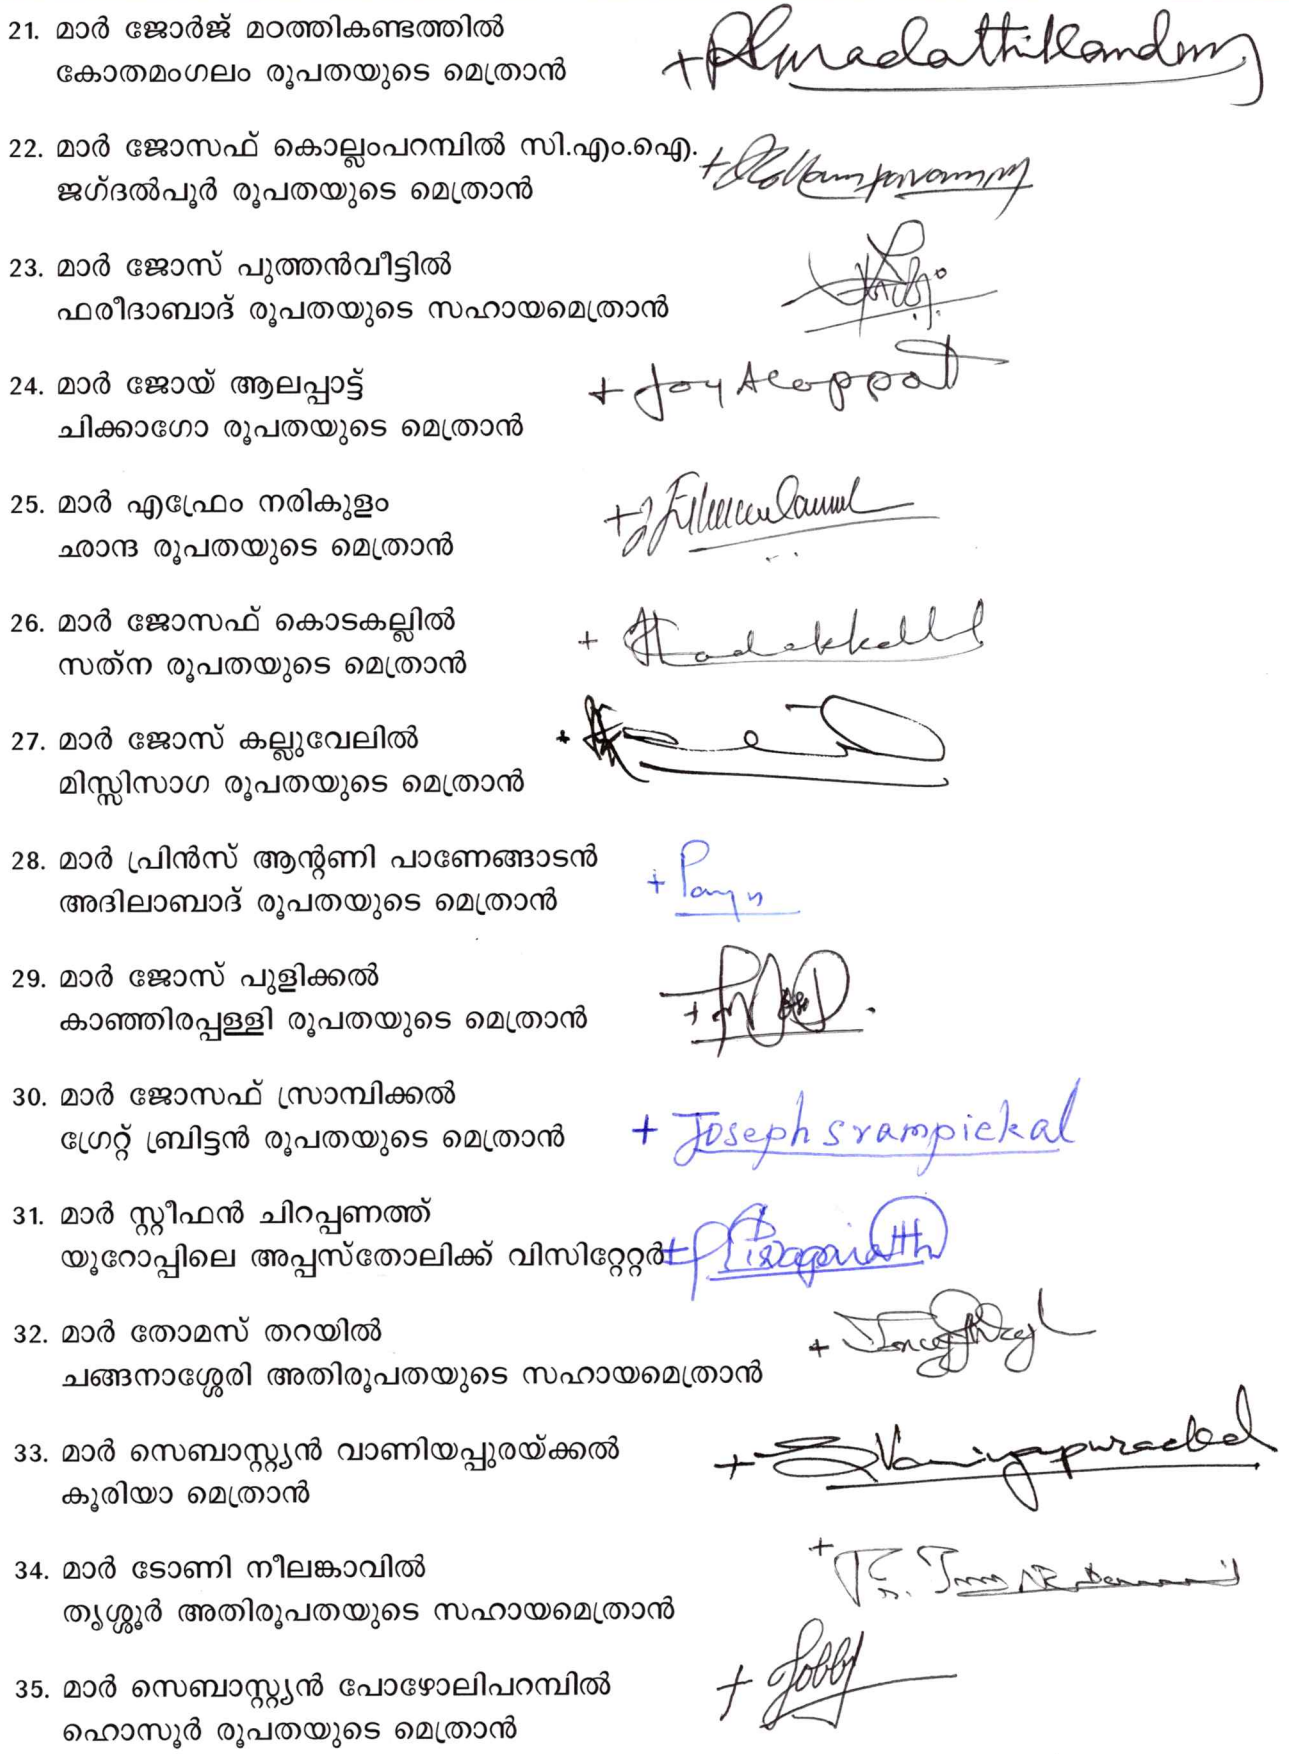 21. മാർ ജോർജ് മഠത്തികണ്ടത്തിൽ
കോതമംഗലം രൂപതയുടെ മെത്രാൻ
22. മാർ ജോസഫ് കൊല്ലംപറമ്പിൽ സി.എം.ഐ.
ജഗ്ദൽപൂർ രൂപതയുടെ മെത്രാൻ
23. മാർ ജോസ് പുത്തൻവീട്ടിൽ
ഫരീദാബാദ് രൂപതയുടെ സഹായമെത്രാൻ
24. മാർ ജോയ് ആലപ്പാട്ട് + Joy Alappat
ചിക്കാഗോ രൂപതയുടെ മെത്രാൻ
25. മാർ എഫ്രേം നരികുളം
ഛാന്ദ രൂപതയുടെ മെത്രാൻ
26. മാർ ജോസഫ് കൊടകല്ലിൽ
സത്ന രൂപതയുടെ മെത്രാൻ
27. മാർ ജോസ് കല്ലുവേലിൽ
മിസ്സിസാഗ രൂപതയുടെ മെത്രാൻ
28. മാർ പ്രിൻസ് ആന്റണി പാണേങ്ങാടൻ
അദിലാബാദ് രൂപതയുടെ മെത്രാൻ
29. മാർ ജോസ് പുളിക്കൽ
കാഞ്ഞിരപ്പള്ളി രൂപതയുടെ മെത്രാൻ
30. മാർ ജോസഫ് സ്രാമ്പിക്കൽ
ഗ്രേറ്റ് ബ്രിട്ടൻ രൂപതയുടെ മെത്രാൻ + Joseph Srampickal
31. മാർ സ്റ്റീഫൻ ചിറപ്പണത്ത്
യൂറോപ്പിലെ അപ്പസ്തോലിക്ക് വിസിറ്റേറ്റർ
32. മാർ തോമസ് തറയിൽ
ചങ്ങനാശ്ശേരി അതിരൂപതയുടെ സഹായമെത്രാൻ
33. മാർ സെബാസ്റ്റ്യൻ വാണിയപ്പുരയ്ക്കൽ
കൂരിയാ മെത്രാൻ
34. മാർ ടോണി നീലങ്കാവിൽ
തൃശ്ശൂർ അതിരൂപതയുടെ സഹായമെത്രാൻ
35. മാർ സെബാസ്റ്റ്യൻ പോഴോലിപറമ്പിൽ
ഹൊസൂർ രൂപതയുടെ മെത്രാൻ